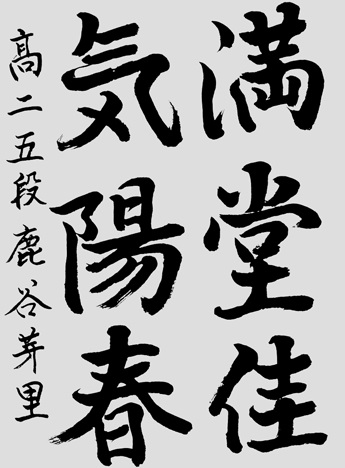 満堂佳
気陽春
高二五段鹿谷芽里